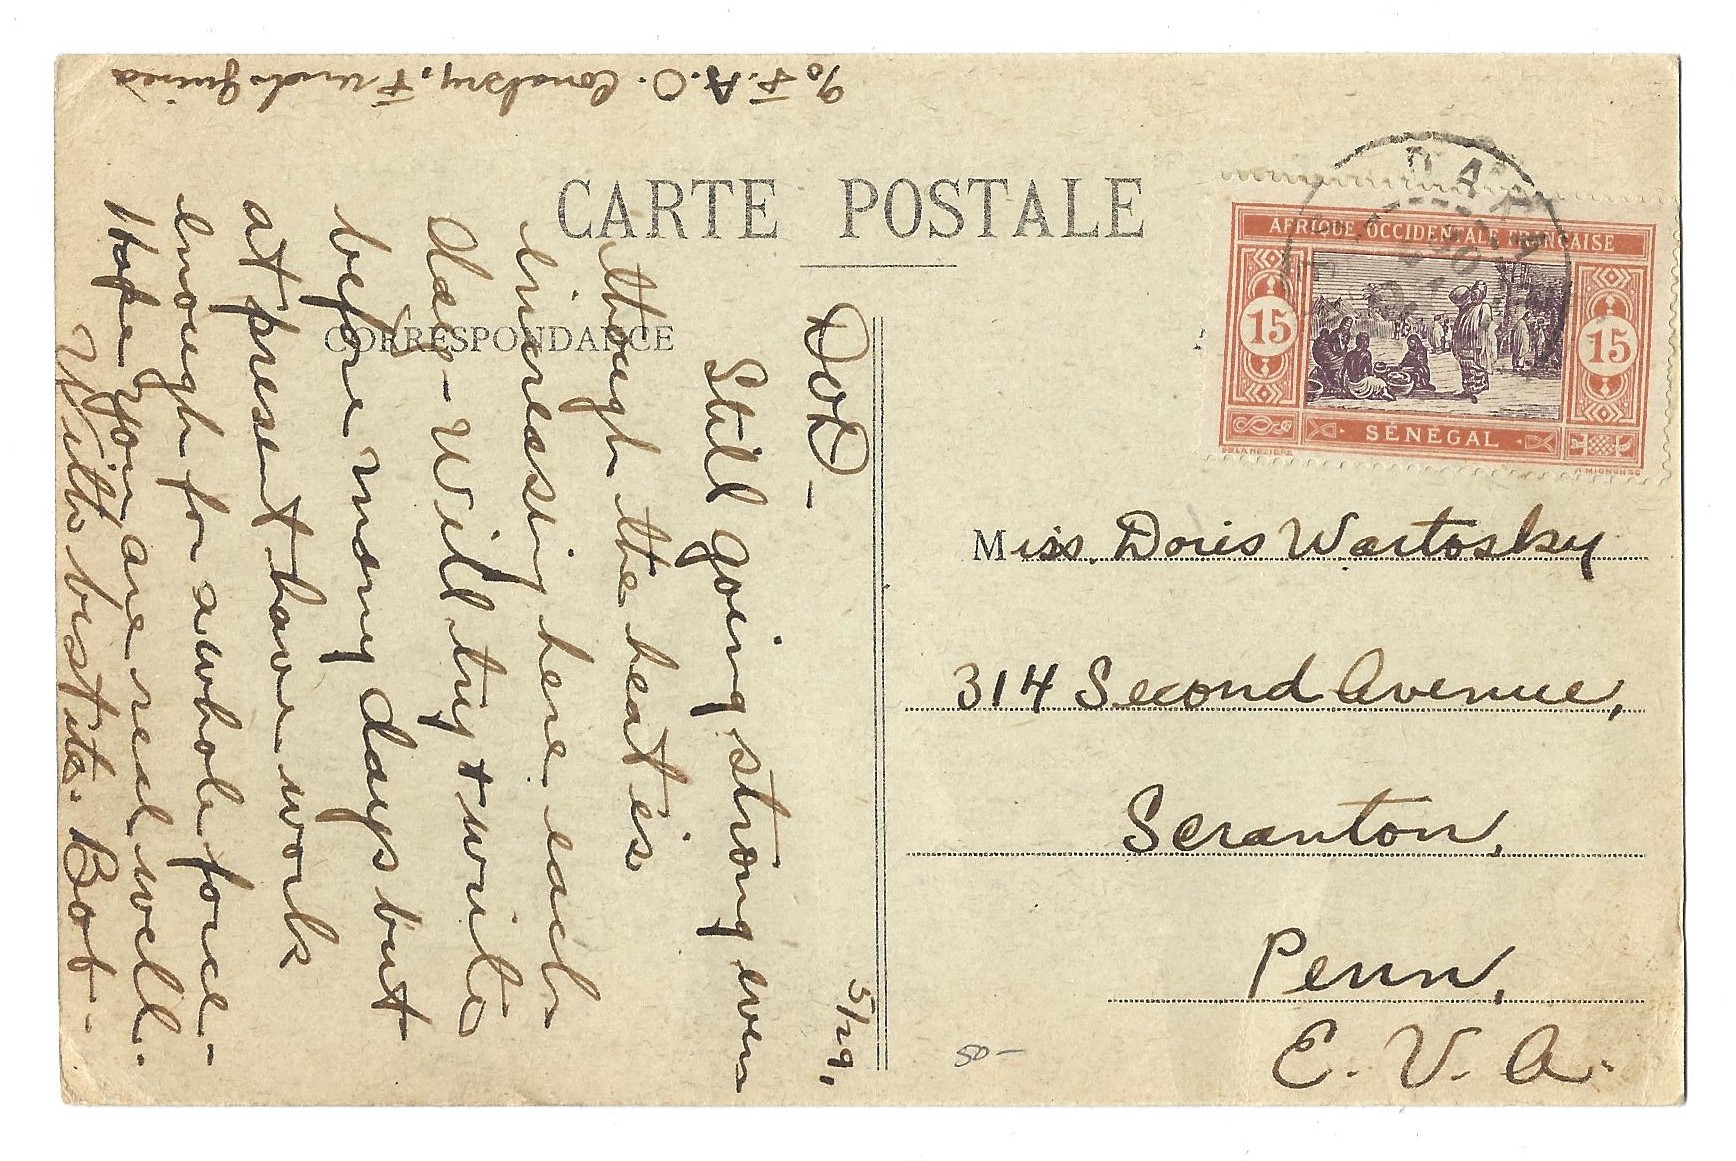 % F.A.O. Conakry, French Guinea
CARTE POSTALE
CORRESPONDANCE
5/29,
Dot -
Still going strong even
though the heat is
increasing here each
day - Will try + write
before many days but
at present have work
enough for a whole force -
Hope you are real well.
With best to - Bob -
DAKAR
AFRIQUE OCCIDENTALE FRANÇAISE
15
15
SÉNÉGAL
DE LA NEZIERE
A. MIGNON SC
Miss. Doris Wartosky
314 Second Avenue,
Scranton,
Penn,
E. U. A.
50-